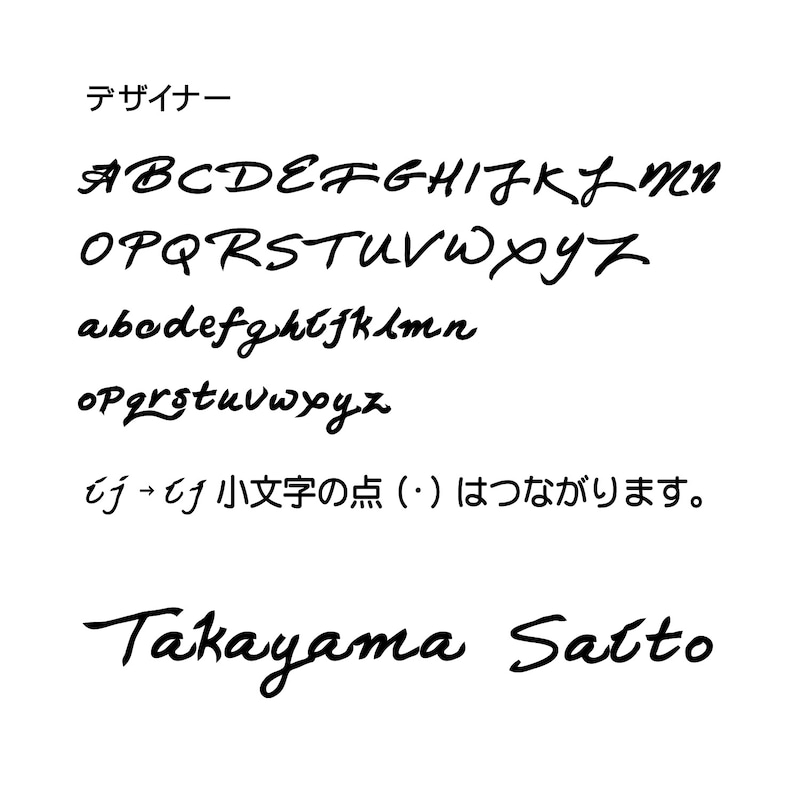 デザイナー
ABCDEFGHIJKLMN
OPQRSTUVWXYZ
abcdefghijklmn
opqrstuvwxyz
ij→ij 小文字の点（・）はつながります。
Takayama Saito